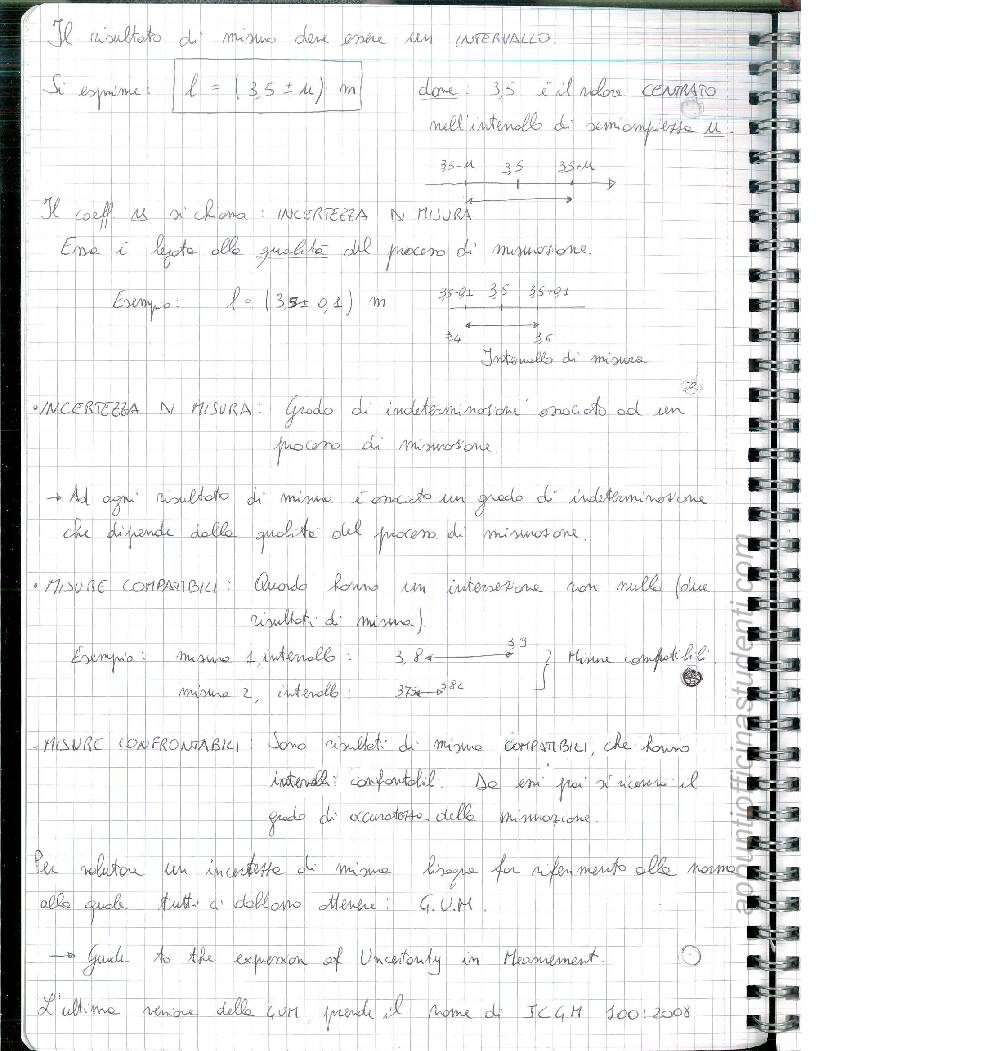 Il risultato di misura deve essere un INTERVALLO.
Si esprime: l = (3,5 ± u) m dove: 3,5 è il valore CENTRATO
nell'intervallo di semiampiezza u.
3,5-u 3,5 3,5+u
Il coeff u si chiama: INCERTEZZA DI MISURA
Essa è legata alla qualità del processo di misurazione.
Esempio: l = (3,5 ± 0,1) m 3,5-0,1 3,5 3,5+0,1
3,4 3,6
Intervallo di misura
• INCERTEZZA DI MISURA: Grado di indeterminazione associato ad un
processo di misurazione
→ Ad ogni risultato di misura è associato un grado di indeterminazione
che dipende dalla qualità del processo di misurazione.
• MISURE COMPATIBILI: Quando hanno un intersezione non nulla (due
risultati di misura)
Esempio: misura 1, intervallo: 3,8 3,9 } Misure compatibili
misura 2, intervallo: 3,75 3,82
• MISURE CONFRONTABILI Sono risultati di misura COMPATIBILI, che hanno
intervalli confontabil. Da essi poi si ricava il
grado di accuratezza della misurazione.
Per valutare un incertezza di misura bisogna far riferimento alla norma
alla quale tutti ci dobbiamo attenere: G.U.M.
→ Guide to the expression of Uncertainty in Measurement.
L'ultima versione della GUM prende il nome di JCGM 100:2008
appuntiofficinastudenti.com